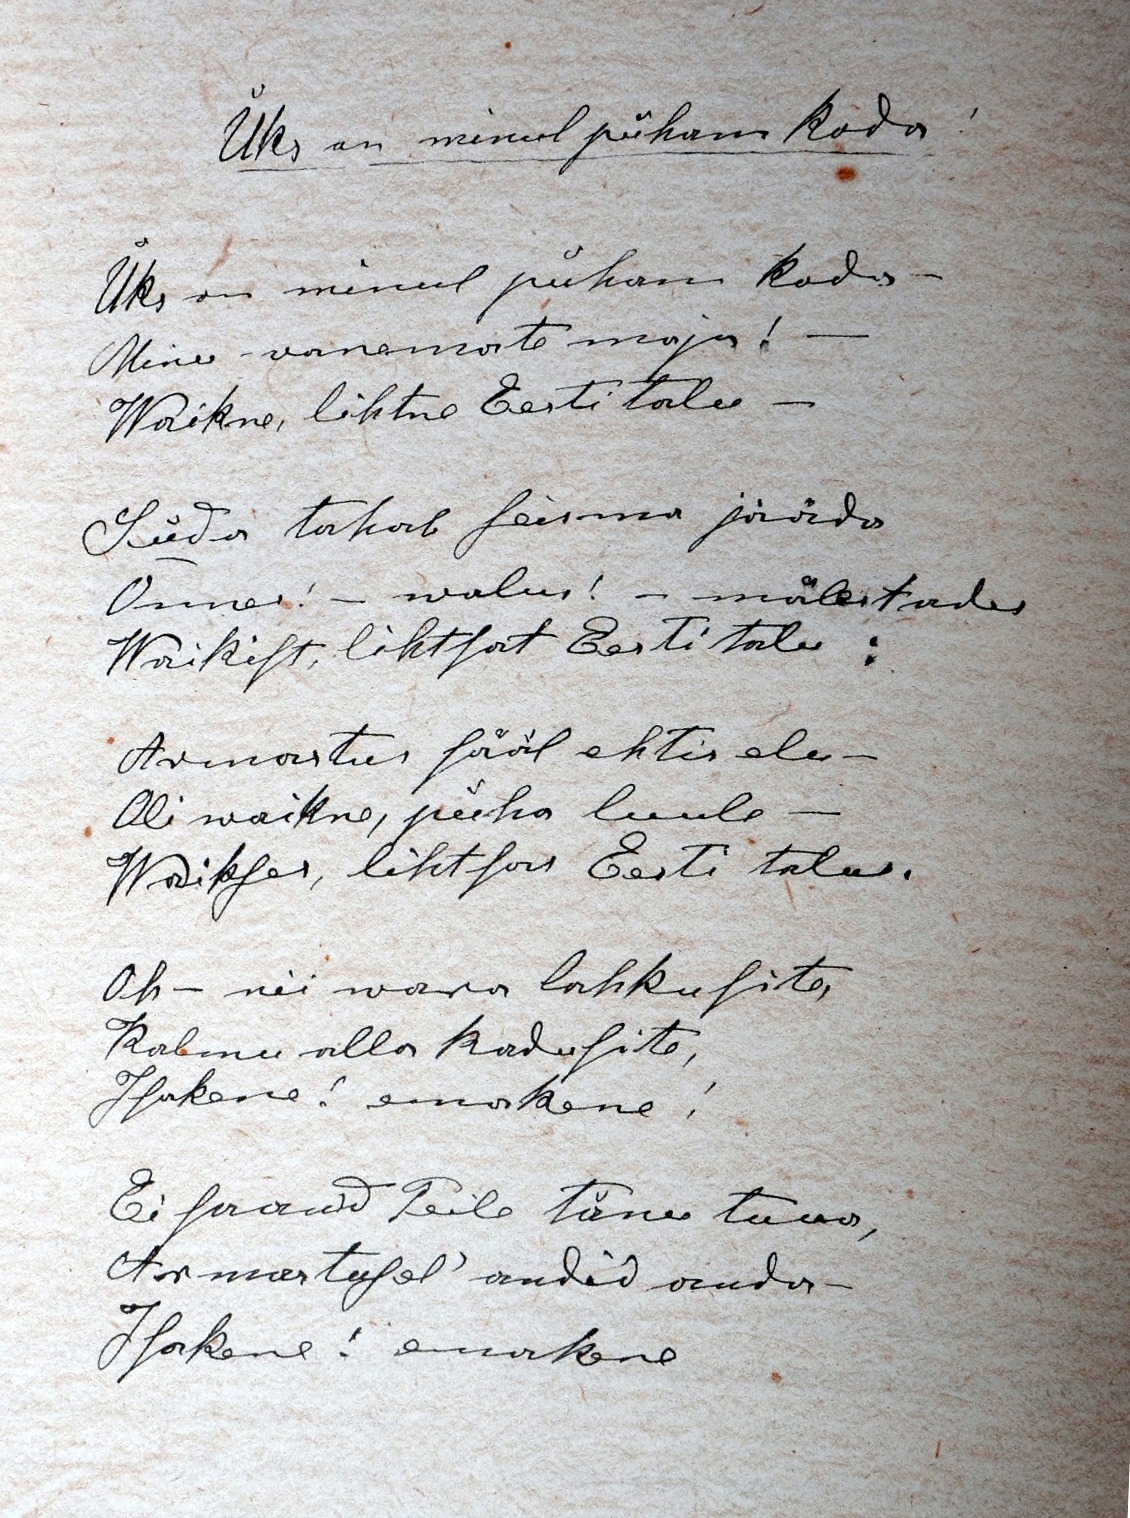 Üks on minul püham koda!
Üks on minul püham koda –
Minu vanemate maja! –
Waikne, lihtne Eesti talu –
Süda tahab seisma jääda
Õnnes! – walus! – mälestades
Waikist, lihtsat Eesti talu :
Armastus sääl ehtis elu –
Oli waikne, püha luule –
Waikses, lihtsas Eesti talus.
Oh – nii wara lahkusite,
Kalmu alla kadusite,
Isakene! emakene!
Ei saanud Teile tänu tuua,
Armastusel' andid anda –
Isakene! emakene